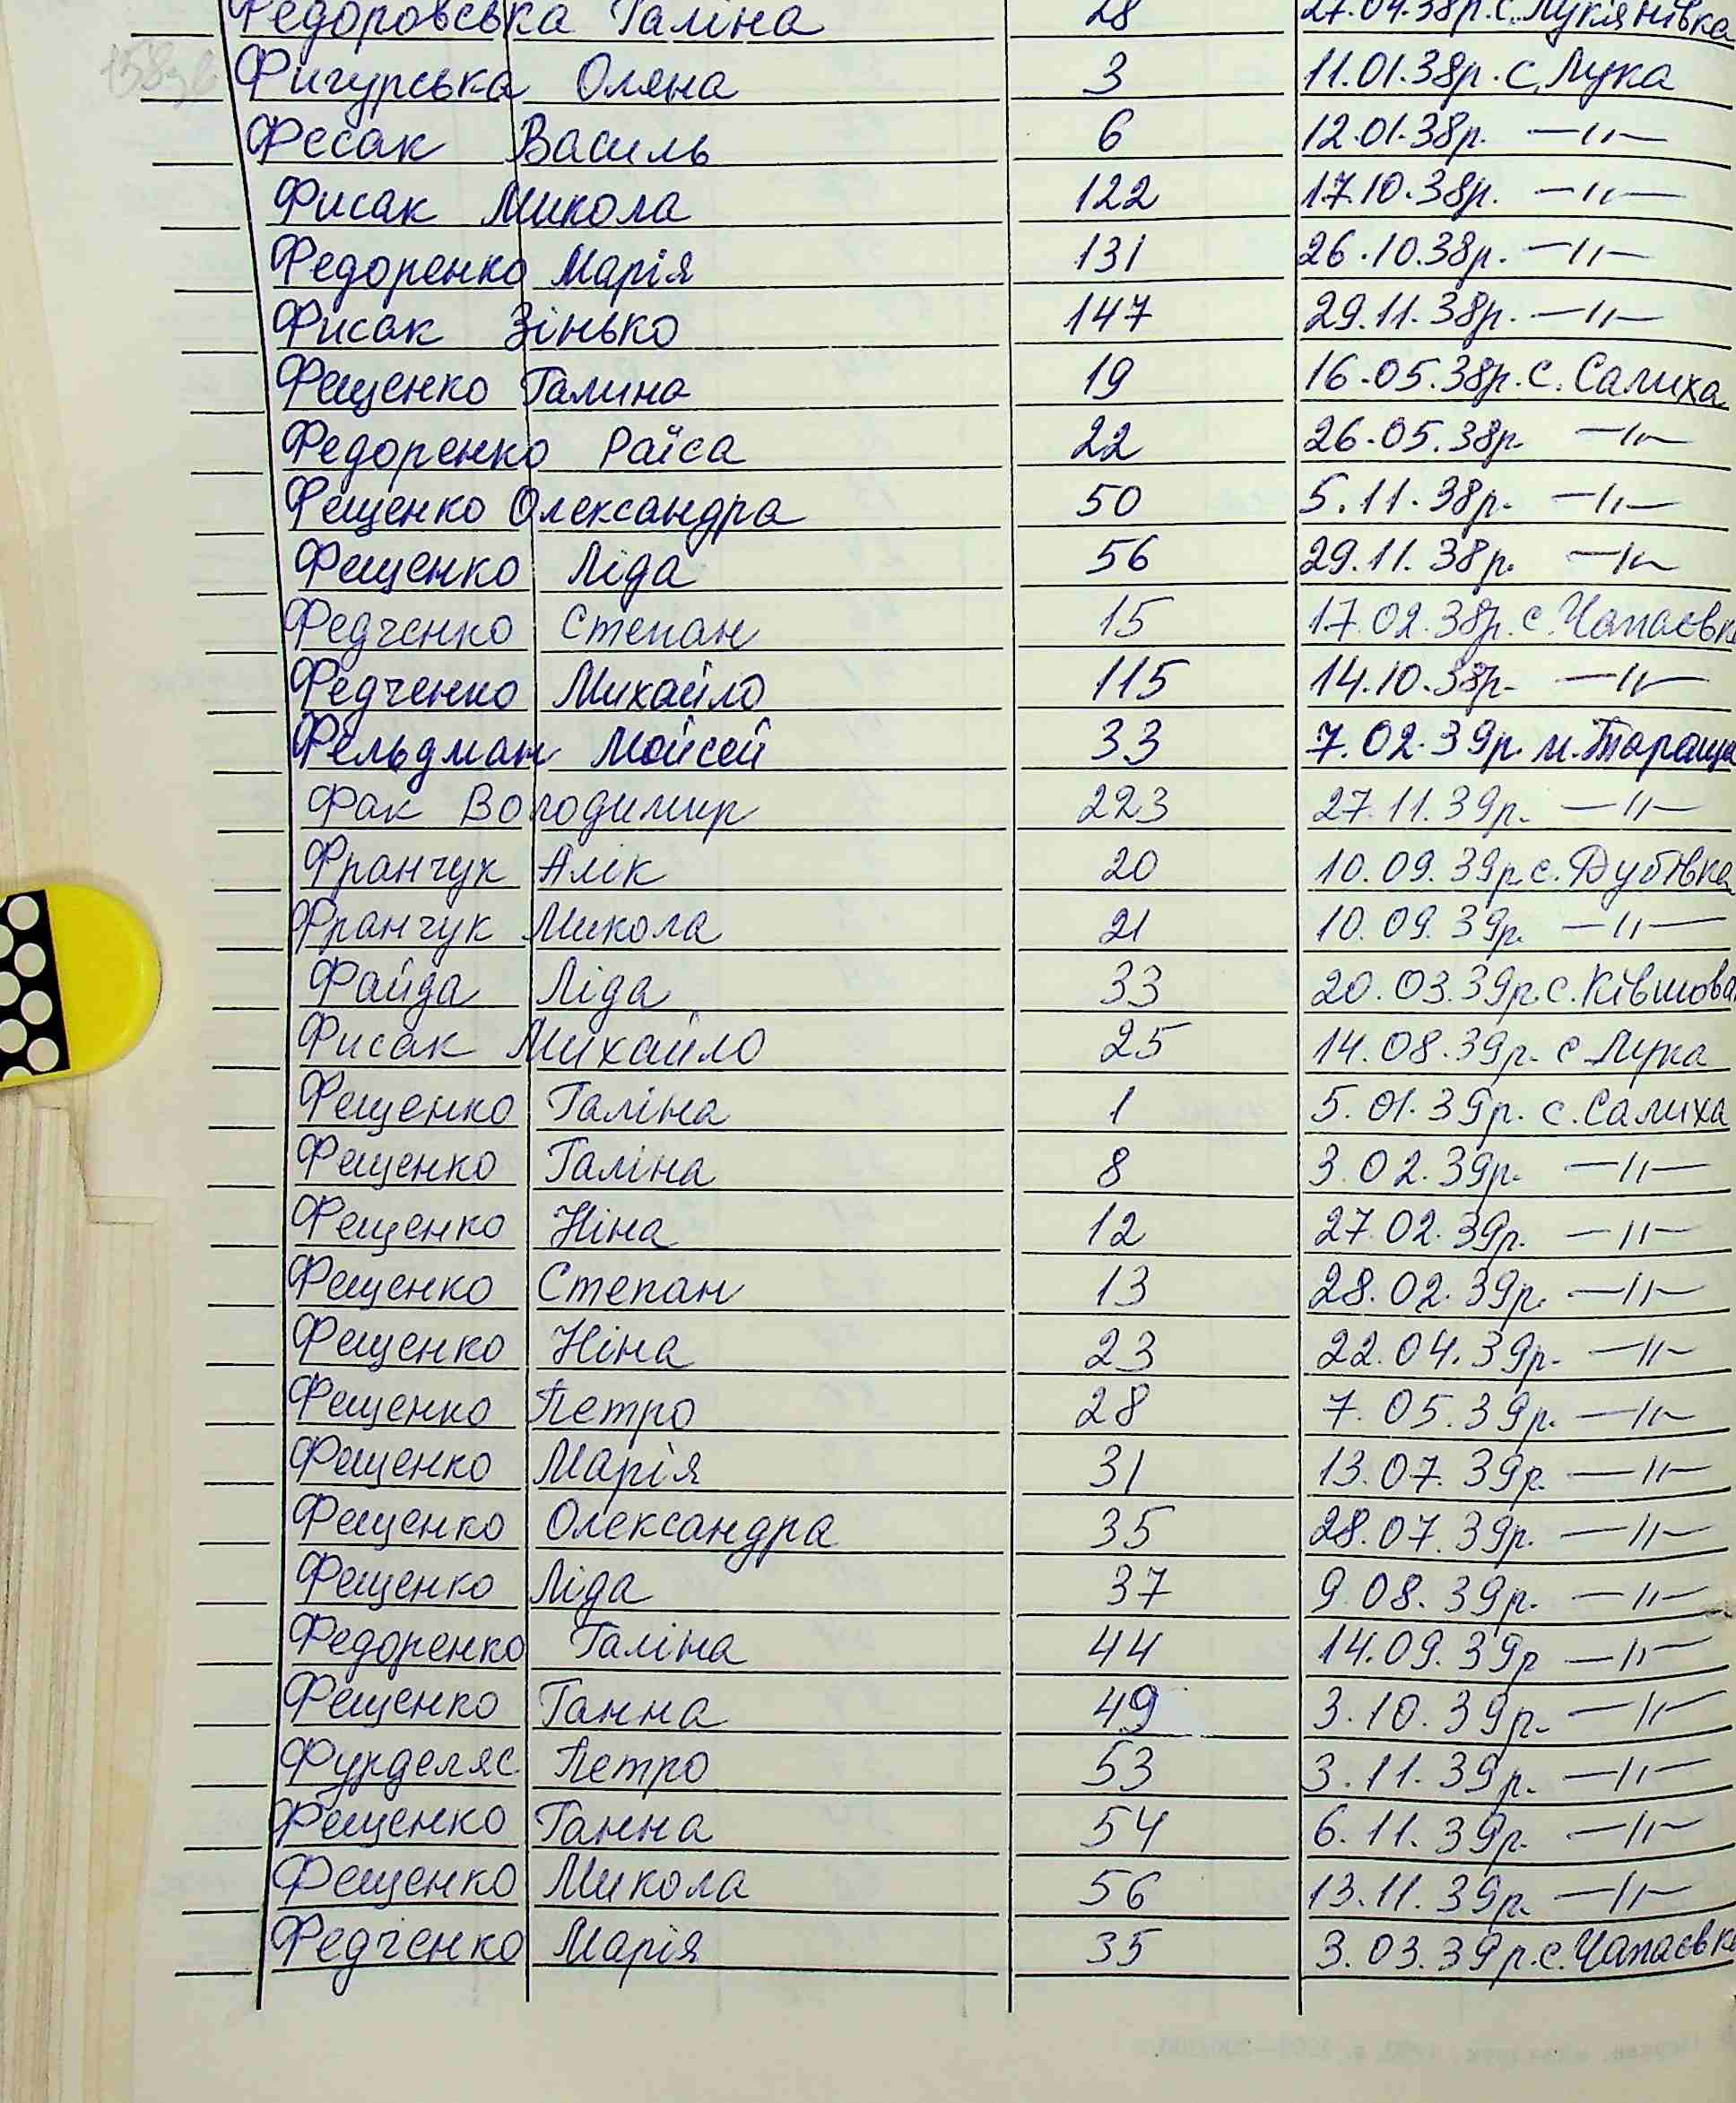 Федоровська Галіна 28 27.04.38р. с. Лук'янівка
Фигурська Оляна 3 11.01.38р. с. Лука
Фесак Василь 6 12.01.38р. —〃—
Фисак Микола 122 17.10.38р. —〃—
Федоренко Марія 131 26.10.38р. —〃—
Фисак Зінько 147 29.11.38р. —〃—
Фещенко Галина 19 16.05.38р. с. Салиха
Федоренко Раїса 22 26.05.38р. —〃—
Фещенко Олександра 50 5.11.38р. —〃—
Фещенко Ліда 56 29.11.38р. —〃—
Федченко Степан 15 17.02.38р. с. Чапаєвк
Федченко Михайло 115 14.10.38р. —〃—
Фельдман Мойсей 33 7.02.39р. м. Тараща
Фак Володимир 223 27.11.39р. —〃—
Франчук Алік 20 10.09.39р. с. Дубівка
Франчук Микола 21 10.09.39р. —〃—
Файда Ліда 33 20.03.39р. с. Ківшова
Фисак Михайло 25 14.08.39р. с Лука
Фещенко Галіна 1 5.01.39р. с. Салиха
Фещенко Галіна 8 3.02.39р. —〃—
Фещенко Ніна 12 27.02.39р. —〃—
Фещенко Степан 13 28.02.39р. —〃—
Фещенко Ніна 23 22.04.39р. —〃—
Фещенко Петро 28 7.05.39р. —〃—
Фещенко Марія 31 13.07.39р. —〃—
Фещенко Олександра 35 28.07.39р. —〃—
Фещенко Ліда 37 9.08.39р. —〃—
Федоренко Галіна 44 14.09.39р —〃—
Фещенко Ганна 49 3.10.39р. —〃—
Фурделяс Петро 53 3.11.39р. —〃—
Фещенко Ганна 54 6.11.39р. —〃—
Фещенко Микола 56 13.11.39р. —〃—
Федченко Марія 35 3.03.39р. с. Чапаєвк